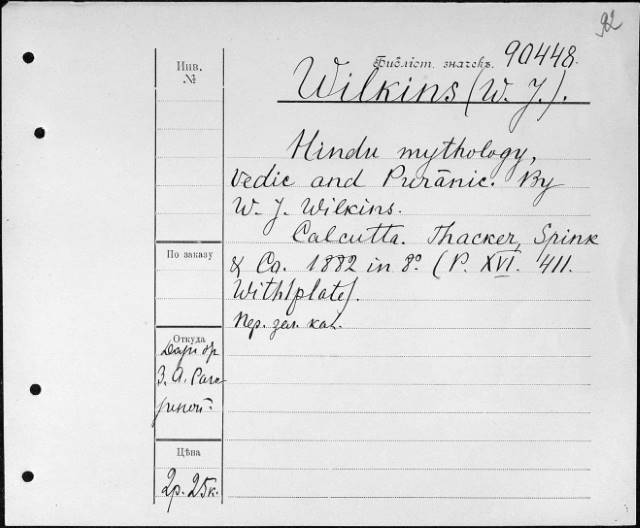 92
Инв.
№
Библіот. значекъ. 90448.
Wilkins (W. J.).
Hindu mythology,
Vedic and Purānic. By
W. J. Wilkins.
Calcutta. Thacker, Spink
& Co. 1882 in 8°. (P. XVI. 411.
With 1 plate).
Пер. зел. кал.
По заказу
Откуда
Даръ
З. А.
Цѣна
2р. 25к.